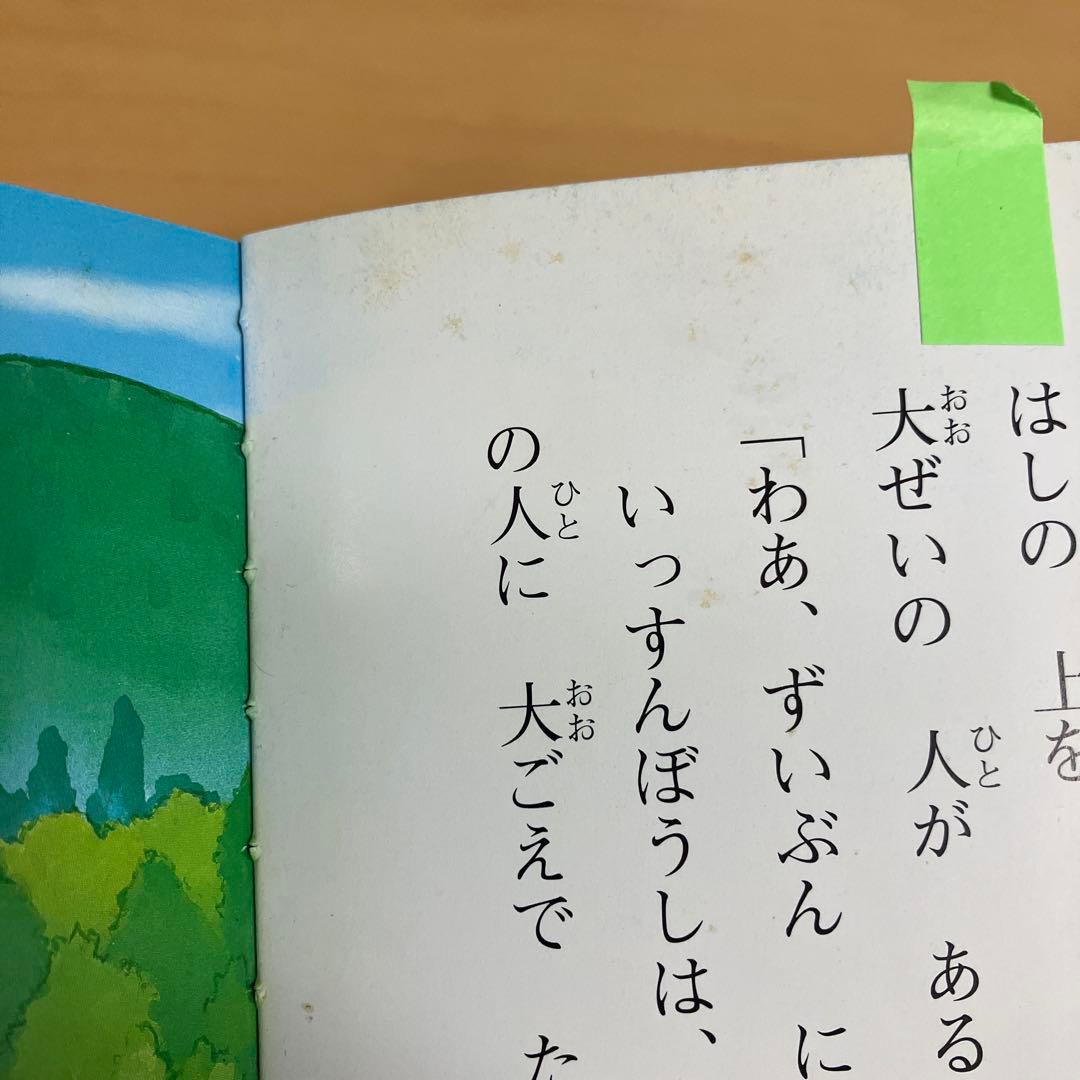 はしの 上を
大ぜいの 人が ある
「わあ、ずいぶん に
いっすんぼうしは、
の人に 大ごえで た